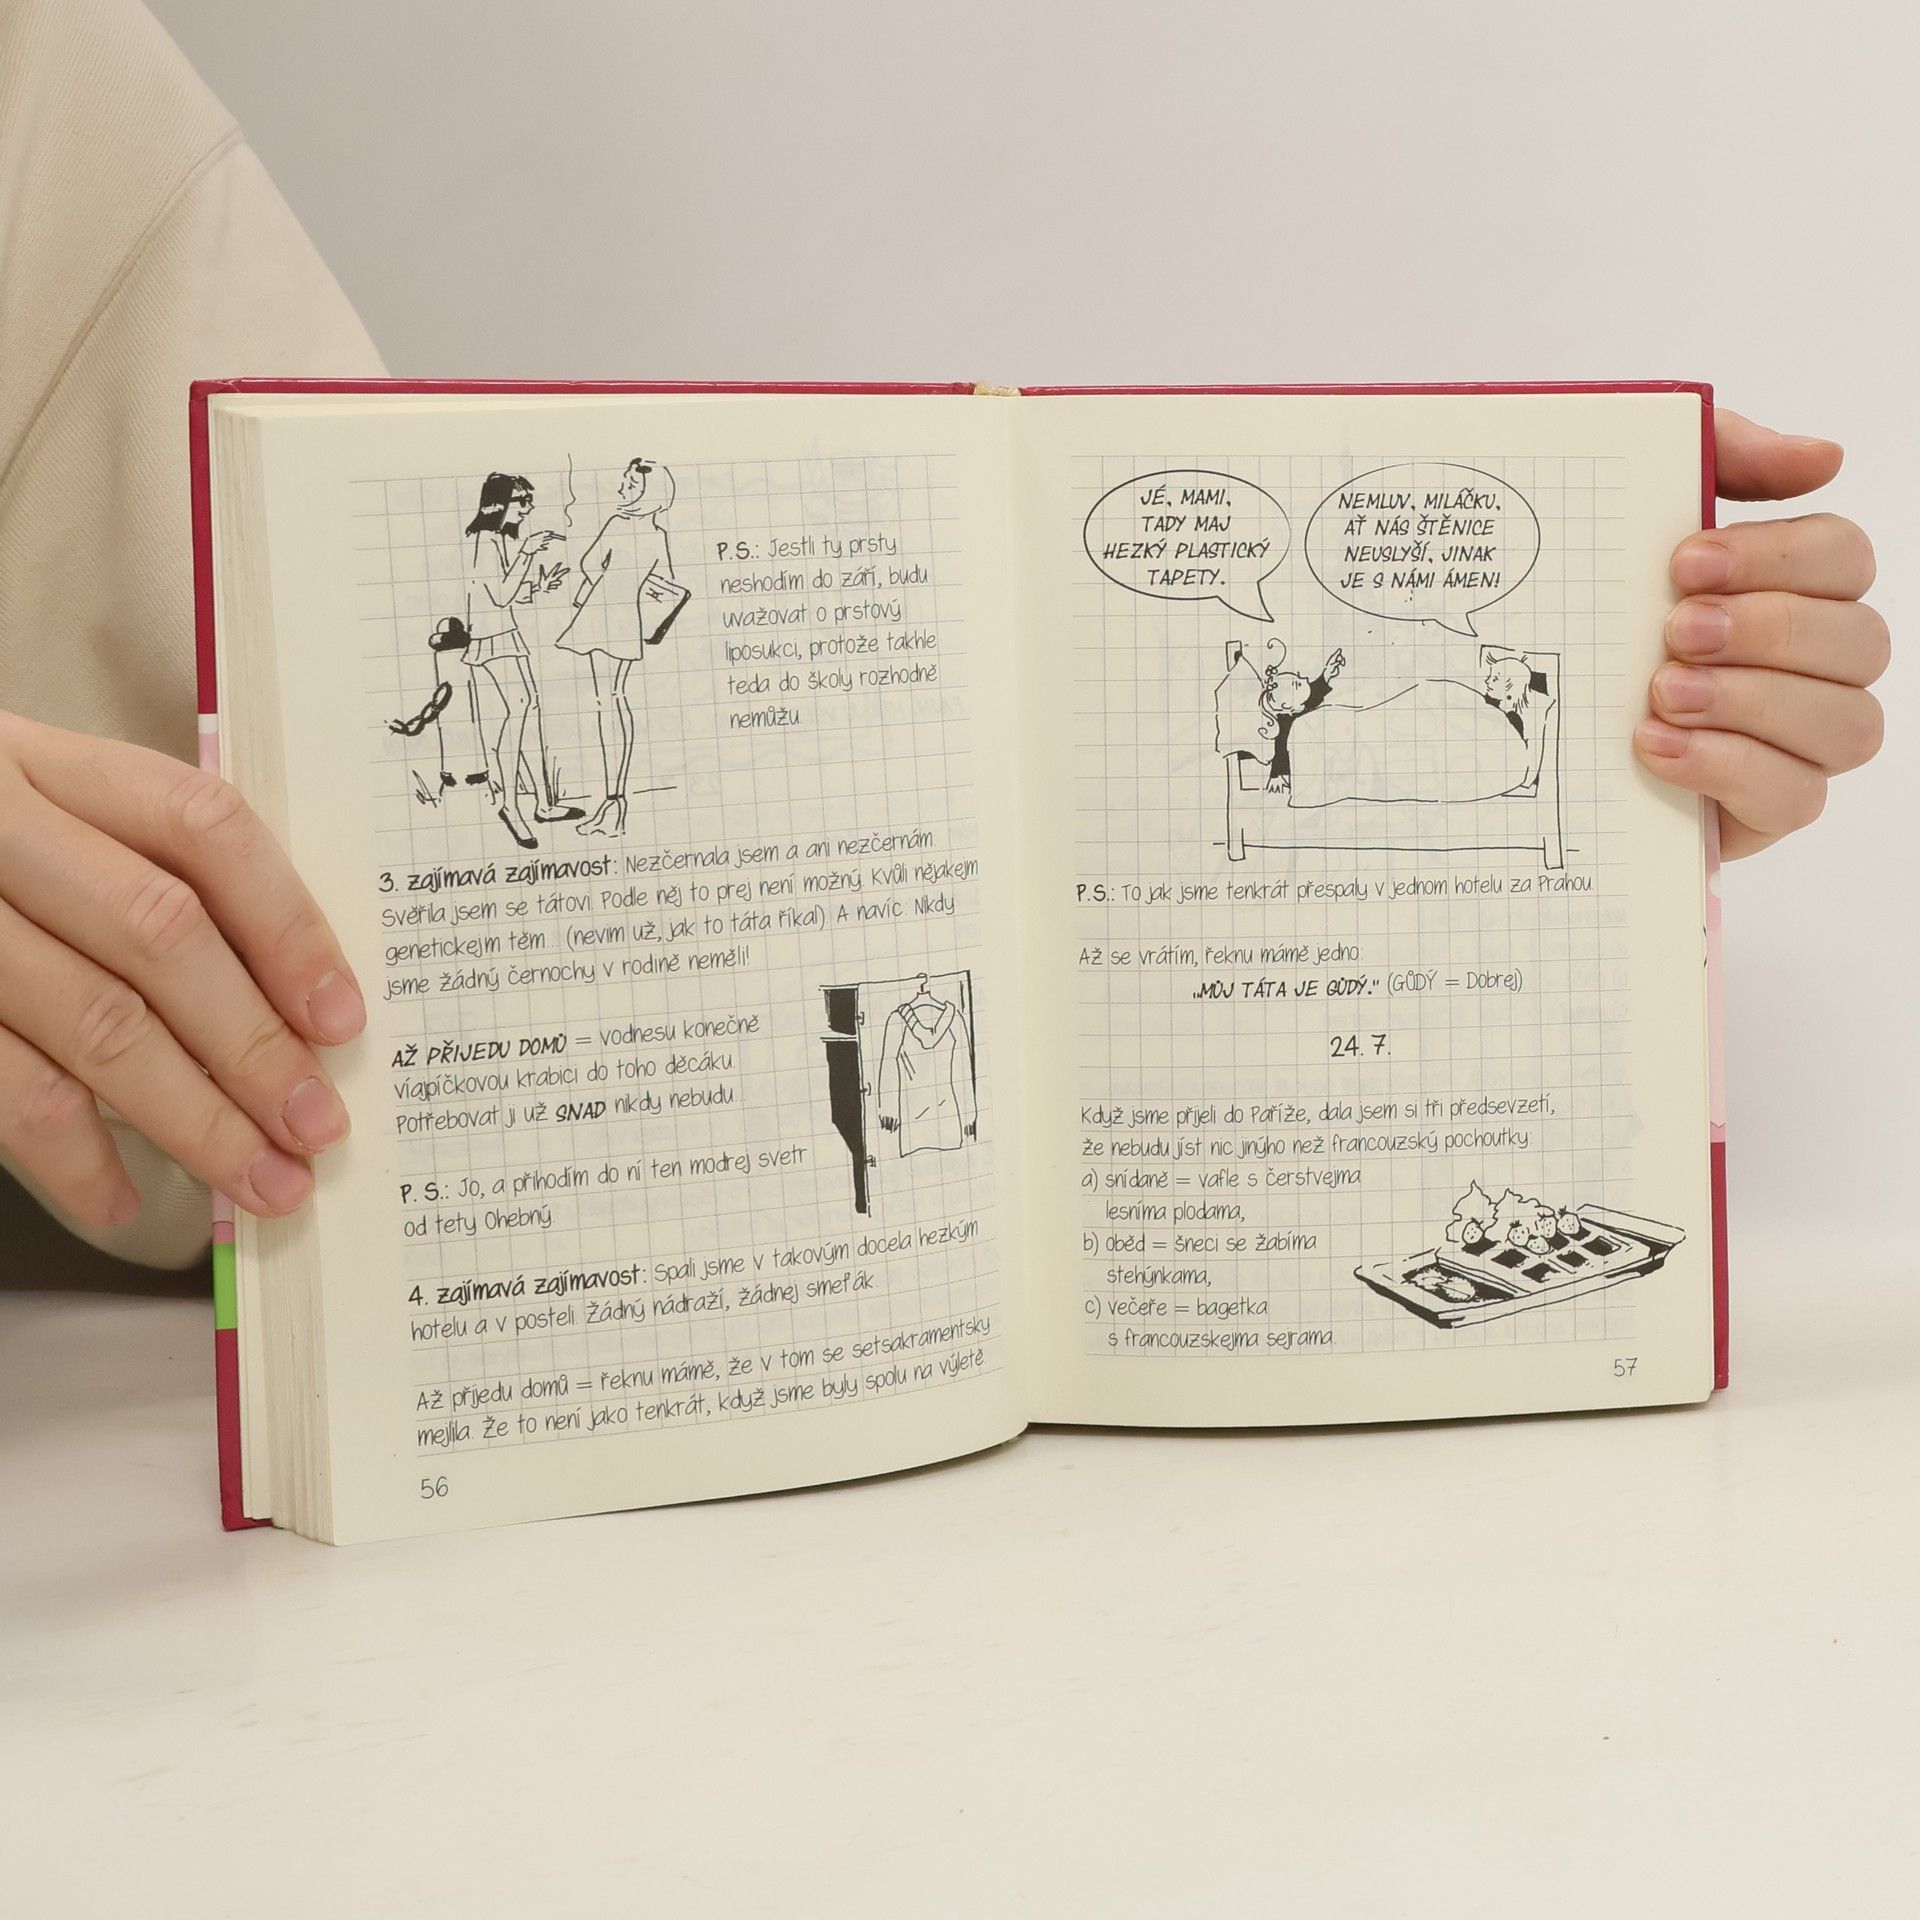 P.S.: Jestli ty prsty
neshodím do září, budu
uvažovat o prstový
liposukci, protože takhle
teda do školy rozhodně
nemůžu.
3. zajímavá zajímavost: Nezčernala jsem a ani nezčernám.
Svěřila jsem se tátovi. Podle něj to prej není možný. Kvůli nějakejm
genetickejm těm... (nevim už, jak to táta říkal). A navíc: Nikdy
jsme žádný černochy v rodině neměli!
AŽ PŘIJEDU DOMŮ = vodnesu konečně
víajpíčkovou krabici do toho děcáku.
Potřebovat ji už SNAD nikdy nebudu...
P. S.: Jo, a přihodím do ní ten modrej svetr
od tety Ohebný.
4. zajímavá zajímavost: Spali jsme v takovým docela hezkým
hotelu a v posteli. Žádný nádraží, žádnej smeťák.
Až přijedu domů = řeknu mámě, že v tom se setsakramentsky
mejlila. Že to není jako tenkrát, když jsme byly spolu na výletě.
56
JÉ, MAMI,
TADY MAJ
HEZKÝ PLASTICKÝ
TAPETY.
NEMLUV, MILÁČKU,
AŤ NÁS ŠTĚNICE
NEUSLYŠÍ, JINAK
JE S NÁMI ÁMEN!
P.S.: To jak jsme tenkrát přespaly v jednom hotelu za Prahou.
Až se vrátím, řeknu mámě jedno:
„MŮJ TÁTA JE GŮDÝ.“ (GŮDÝ = Dobrej)
24. 7.
Když jsme přijeli do Paříže, dala jsem si tři předsevzetí,
že nebudu jíst nic jinýho než francouzský pochoutky:
a) snídaně = vafle s čerstvejma
lesníma plodama,
b) oběd = šneci se žabíma
stehýnkama,
c) večeře = bagetka
s francouzskejma sejrama.
57